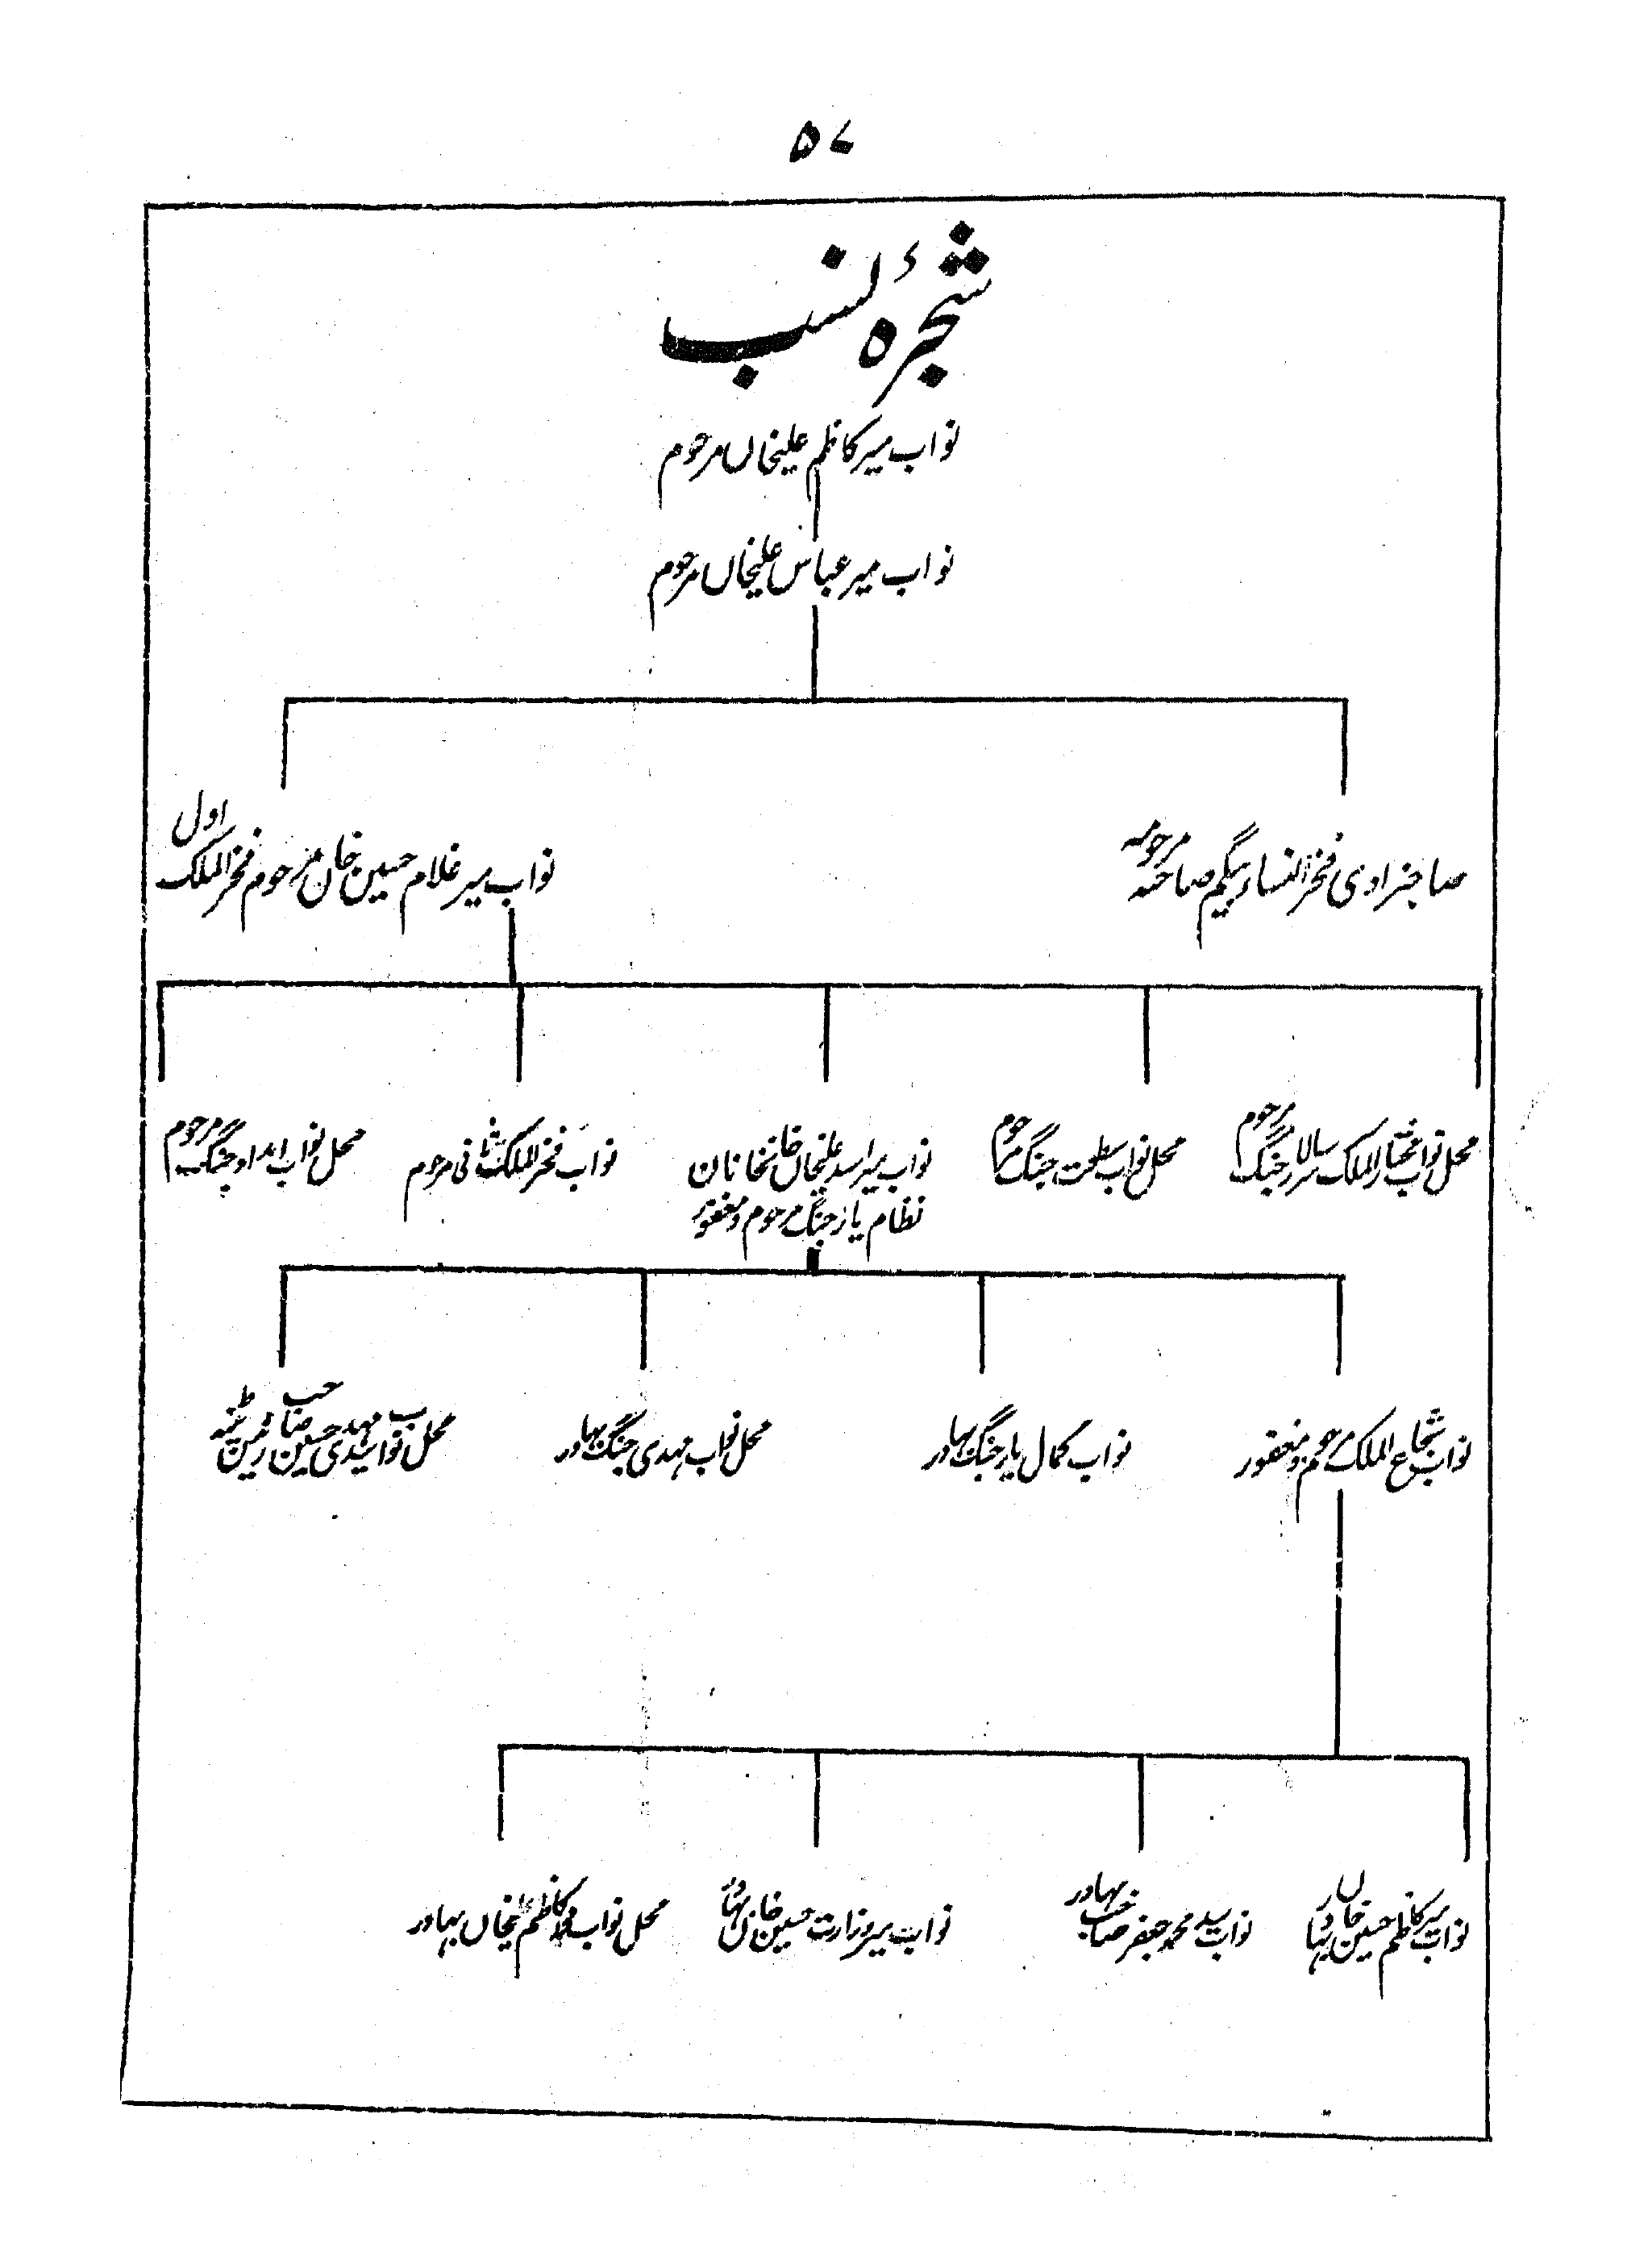 ۵۷
شجرۂ نسب
نواب میر کاظم علیخاں مرحوم
نواب میر عباس علیخاں مرحوم
صاحبزادی فخر النساء بیگم صاحبہ مرحومہ
نواب میر غلام حسین خان مرحوم فخر الملک اول
محل نواب مختار الملک سر سالار جنگ مرحوم
محل نواب سطوت جنگ مرحوم
نواب میر اسد علیخاں خانخانان
نظام یار جنگ مرحوم و مغفور
نواب فخر الملک ثانی مرحوم
محل نواب امداد جنگ مرحوم
نواب شجاع الملک مرحوم و مغفور
نواب کمال یار جنگ بہادر
محل نواب مہدی جنگ بہادر
محل نواب سید مہدی حسین صاحب رئیس پٹنہ
نواب میر کاظم حسین خاں بہادر
نواب سید محمد جعفر صاحب بہادر
نواب میر وزارت حسین خاں بہادر
محل نواب کاظم علیخاں بہادر